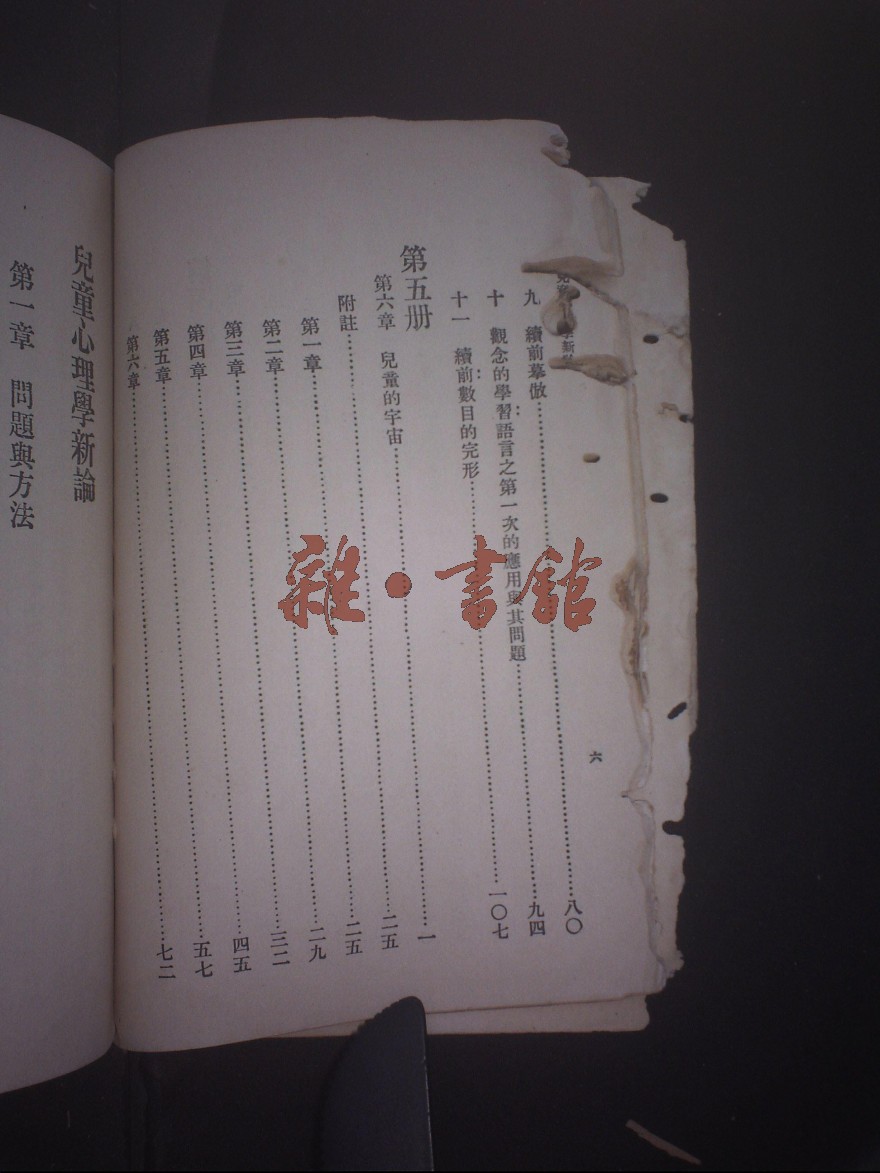 六
九 續前摹倣……八〇
十 觀念的學習：語言之第一次的應用與其問題……九四
十一 續前：數目的完形……一〇七
第五册
第六章 兒童的宇宙……一
附註……二五
第一章……二五
第二章……二九
第三章……三二
第四章……四五
第五章……五七
第六章……七二
兒童心理學新論
第一章 問題與方法
雜·書館